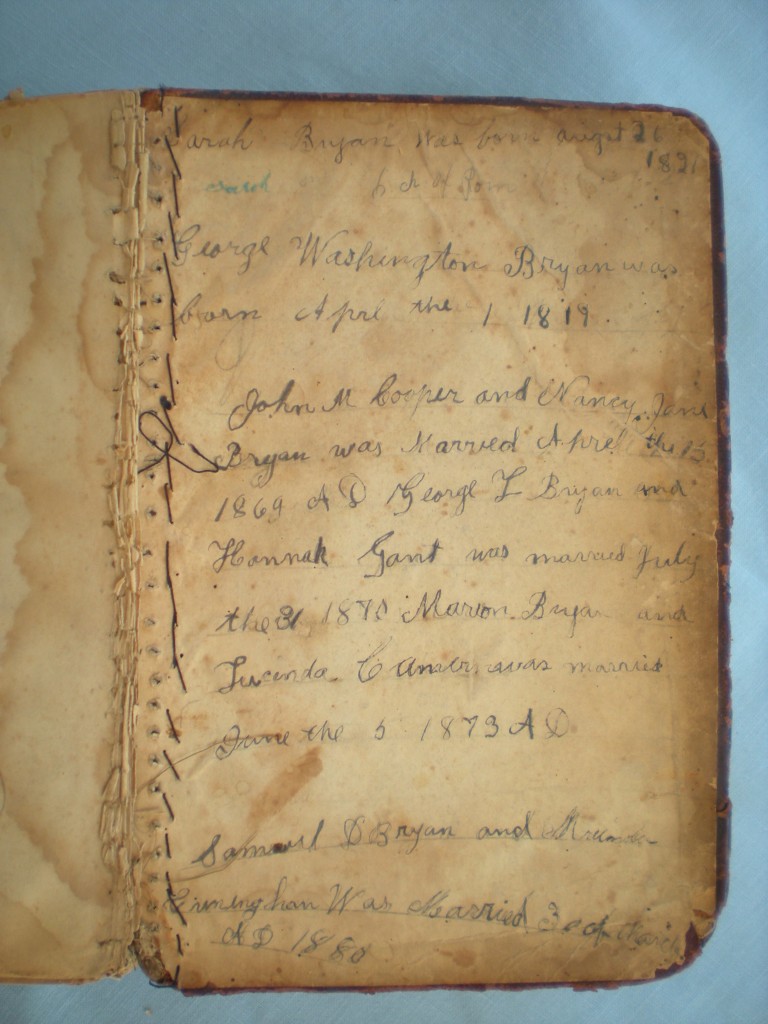 Sarah Bryan was born augst 26
1821
sarah
George Washington Bryan was
born Aprl the 1 1819
John M Cooper and Nancy Jane
Bryan was Marred Aprel the 15
1869 A D George L Bryan and
Hannah Gant was married July
the 31 1870 Marion Bryan and
Lucinda C was married
June the 5 1873 A D
Samuel D Bryan and
Was Married 30 of March
AD 1880